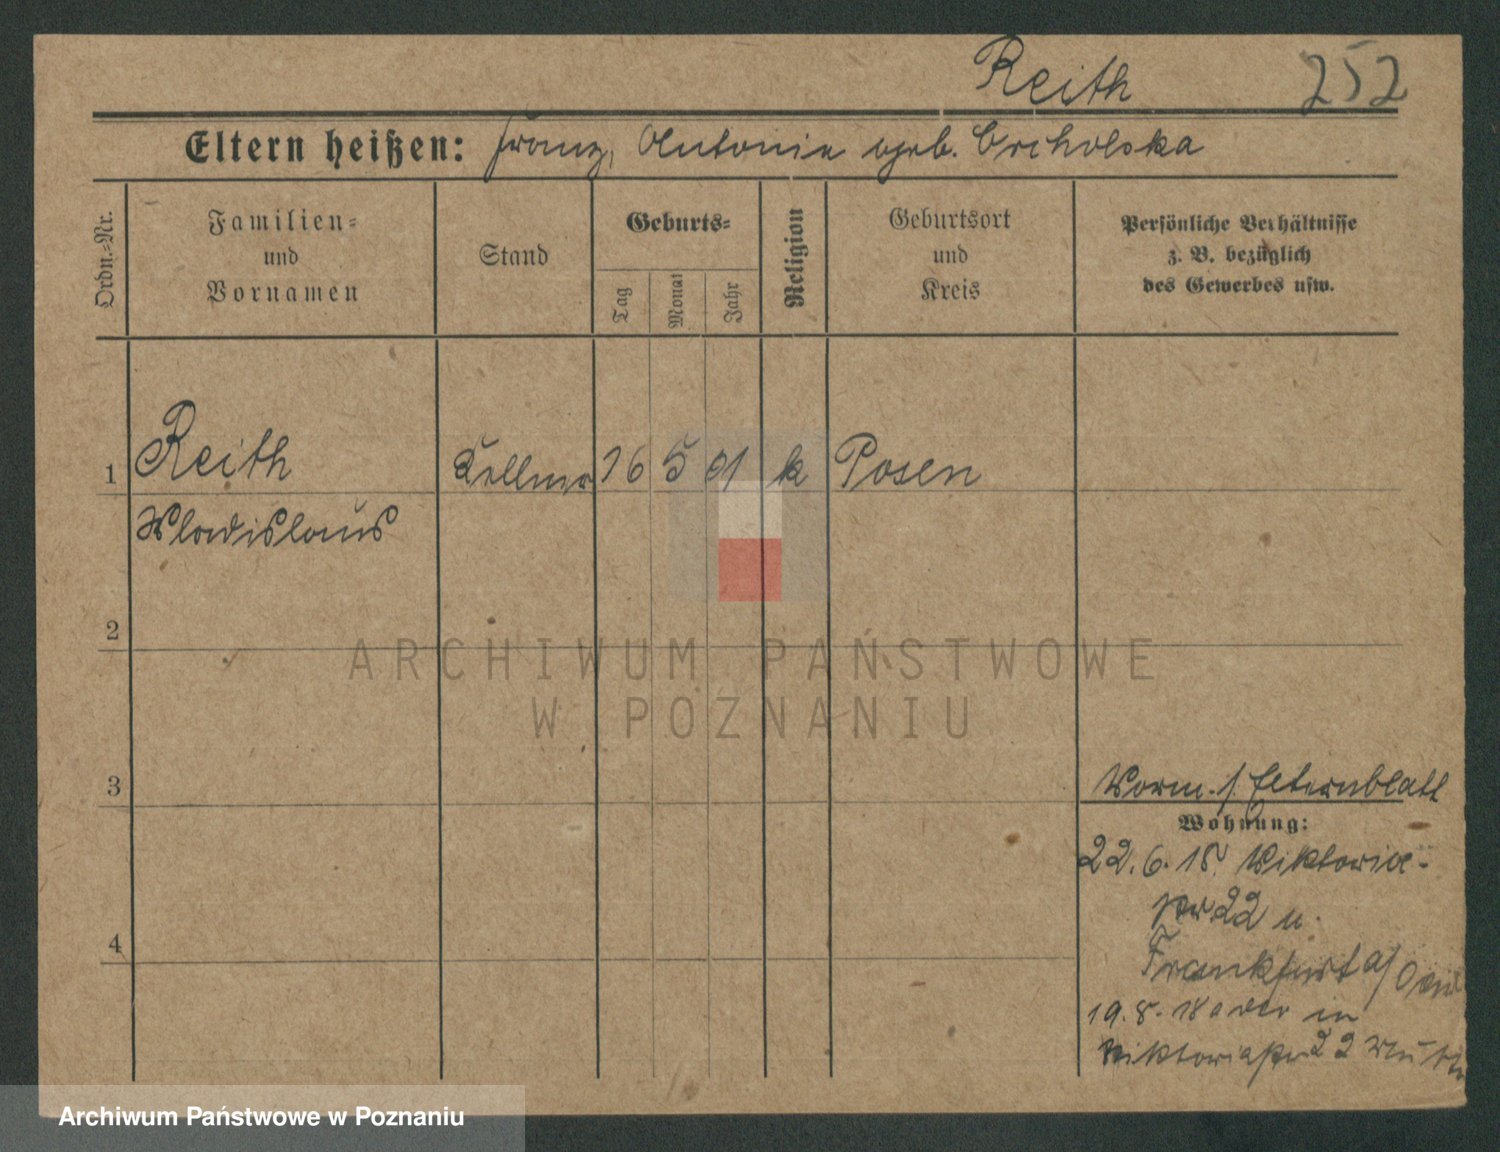 Reith 252
Eltern heißen: Franz, Antonie geb. Orcholska
Ordn.=Nr.
Familien=
und
Vornamen
Stand
Geburts=
Tag
Monat
Jahr
Religion
Geburtsort
und
Kreis
Persönliche Verhältnisse
z. B. bezüglich
des Gewerbes usw.
1 Reith Kellner 16 5 01 k Posen
Wladislaus
2
3
4
Vorm. s. Elternblatt
Wohnung:
22. 6. 18. Viktoria-
str 22 n.
Frankfurt a/Oder
19. 8. 18 oder in
Viktoriastr 22
ARCHIWUM PAŃSTWOWE
W POZNANIU
Archiwum Państwowe w Poznaniu